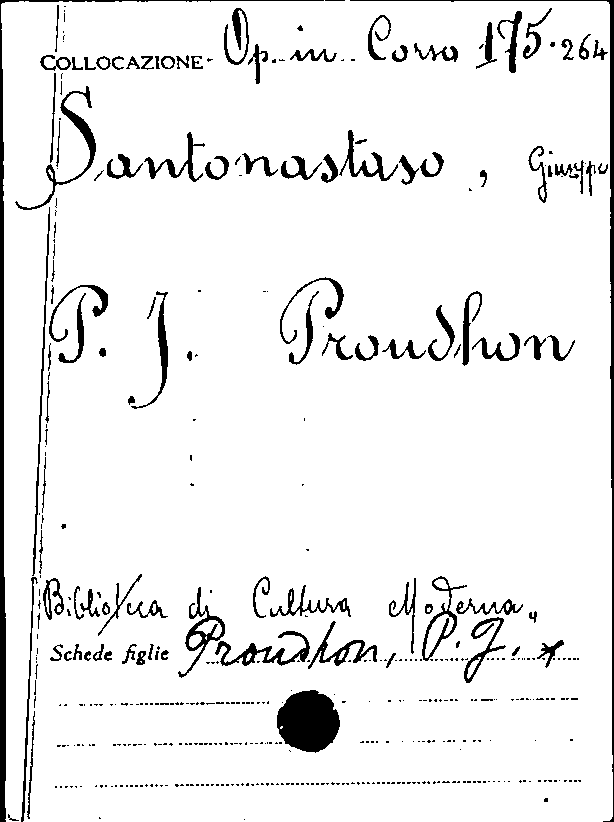 COLLOCAZIONE Op. in Corso 175.264
Santonastaso, Giuseppe
P. J. Proudhon
Biblioteca di Cultura Moderna"
Schede figlie Proudhon, P. J. *